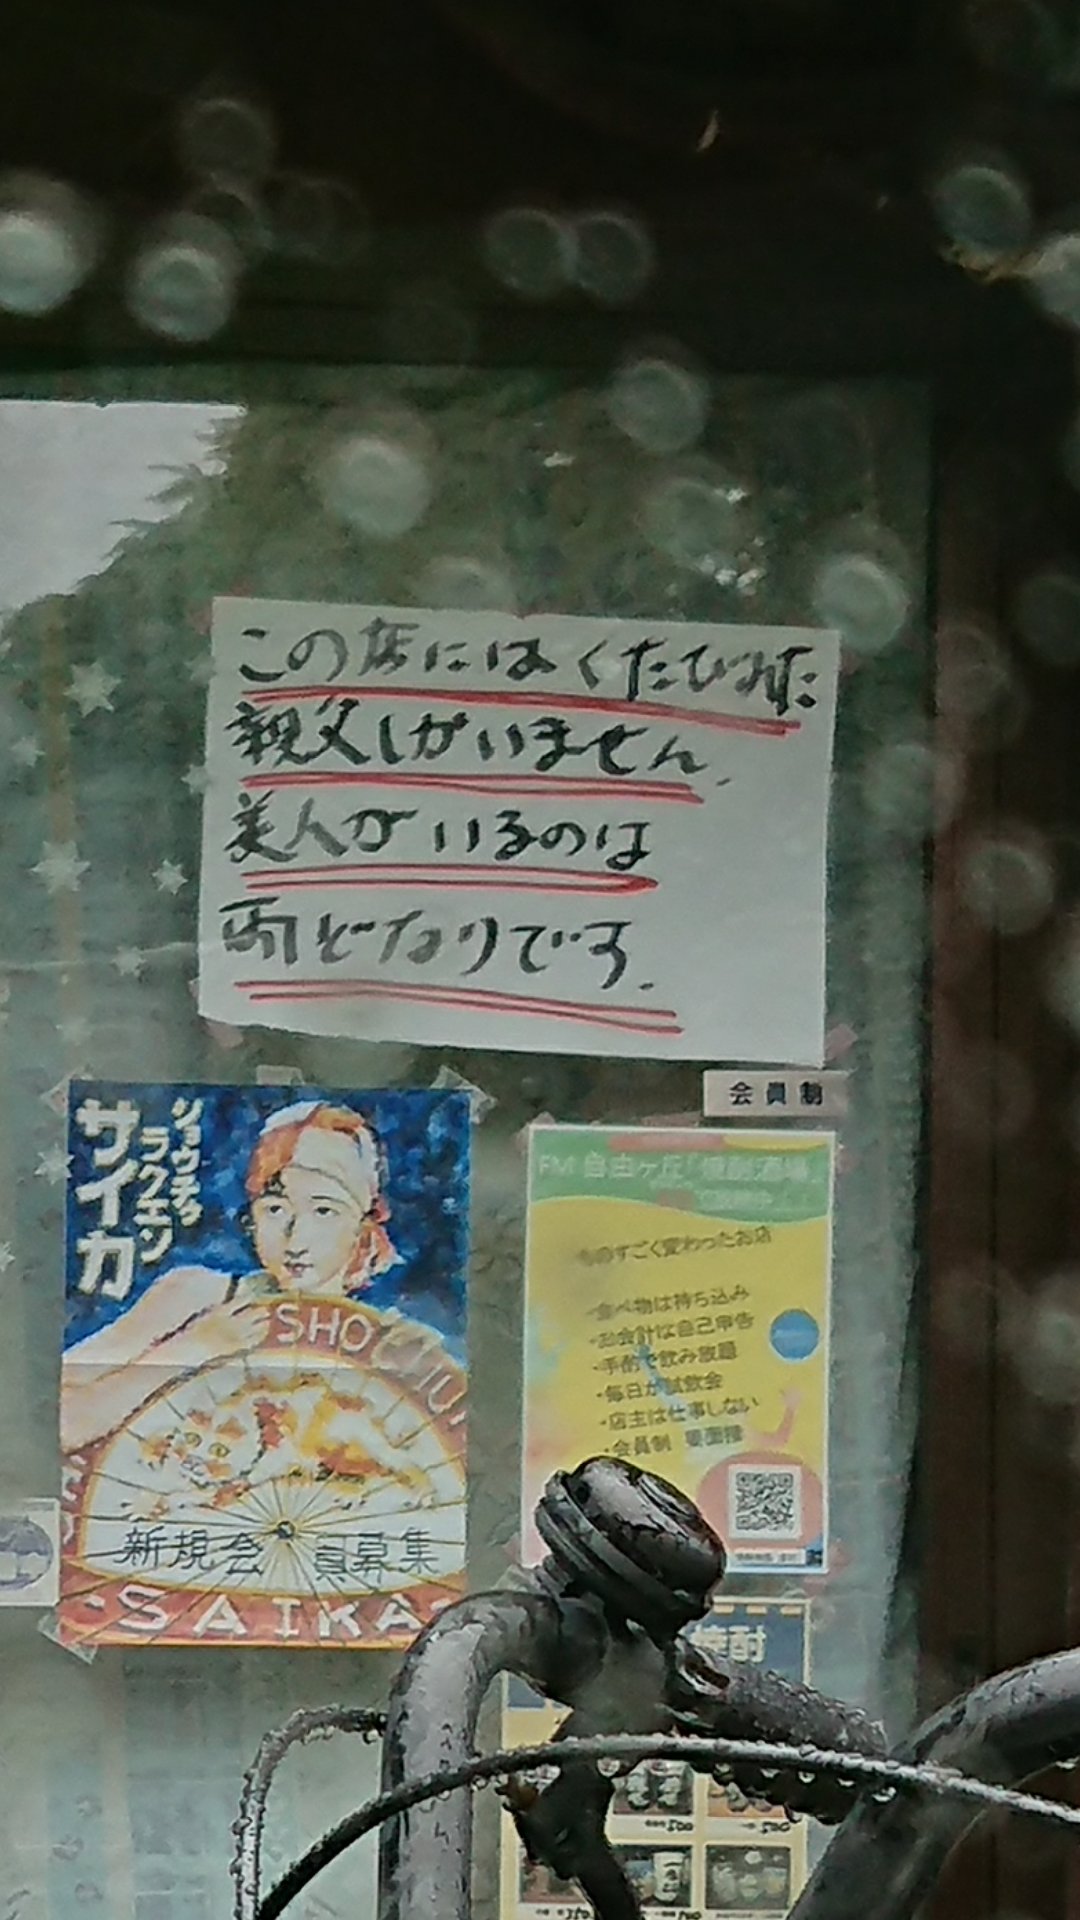 この店にはくたびれた
親父しかいません.
美人がいるのは
両どなりです.
会員制
ショウチウ
ラクエン
サイカ
SHOCHU
新規会員募集
SAIKA
FM 自由ヶ丘「焼酎酒場」
ものすごく変わったお店
・食べ物は持ち込み
・お会計は自己申告
・手酌で飲み放題
・毎日が試飲会
・店主は仕事しない
・会員制 要面接
焼酎
500
500